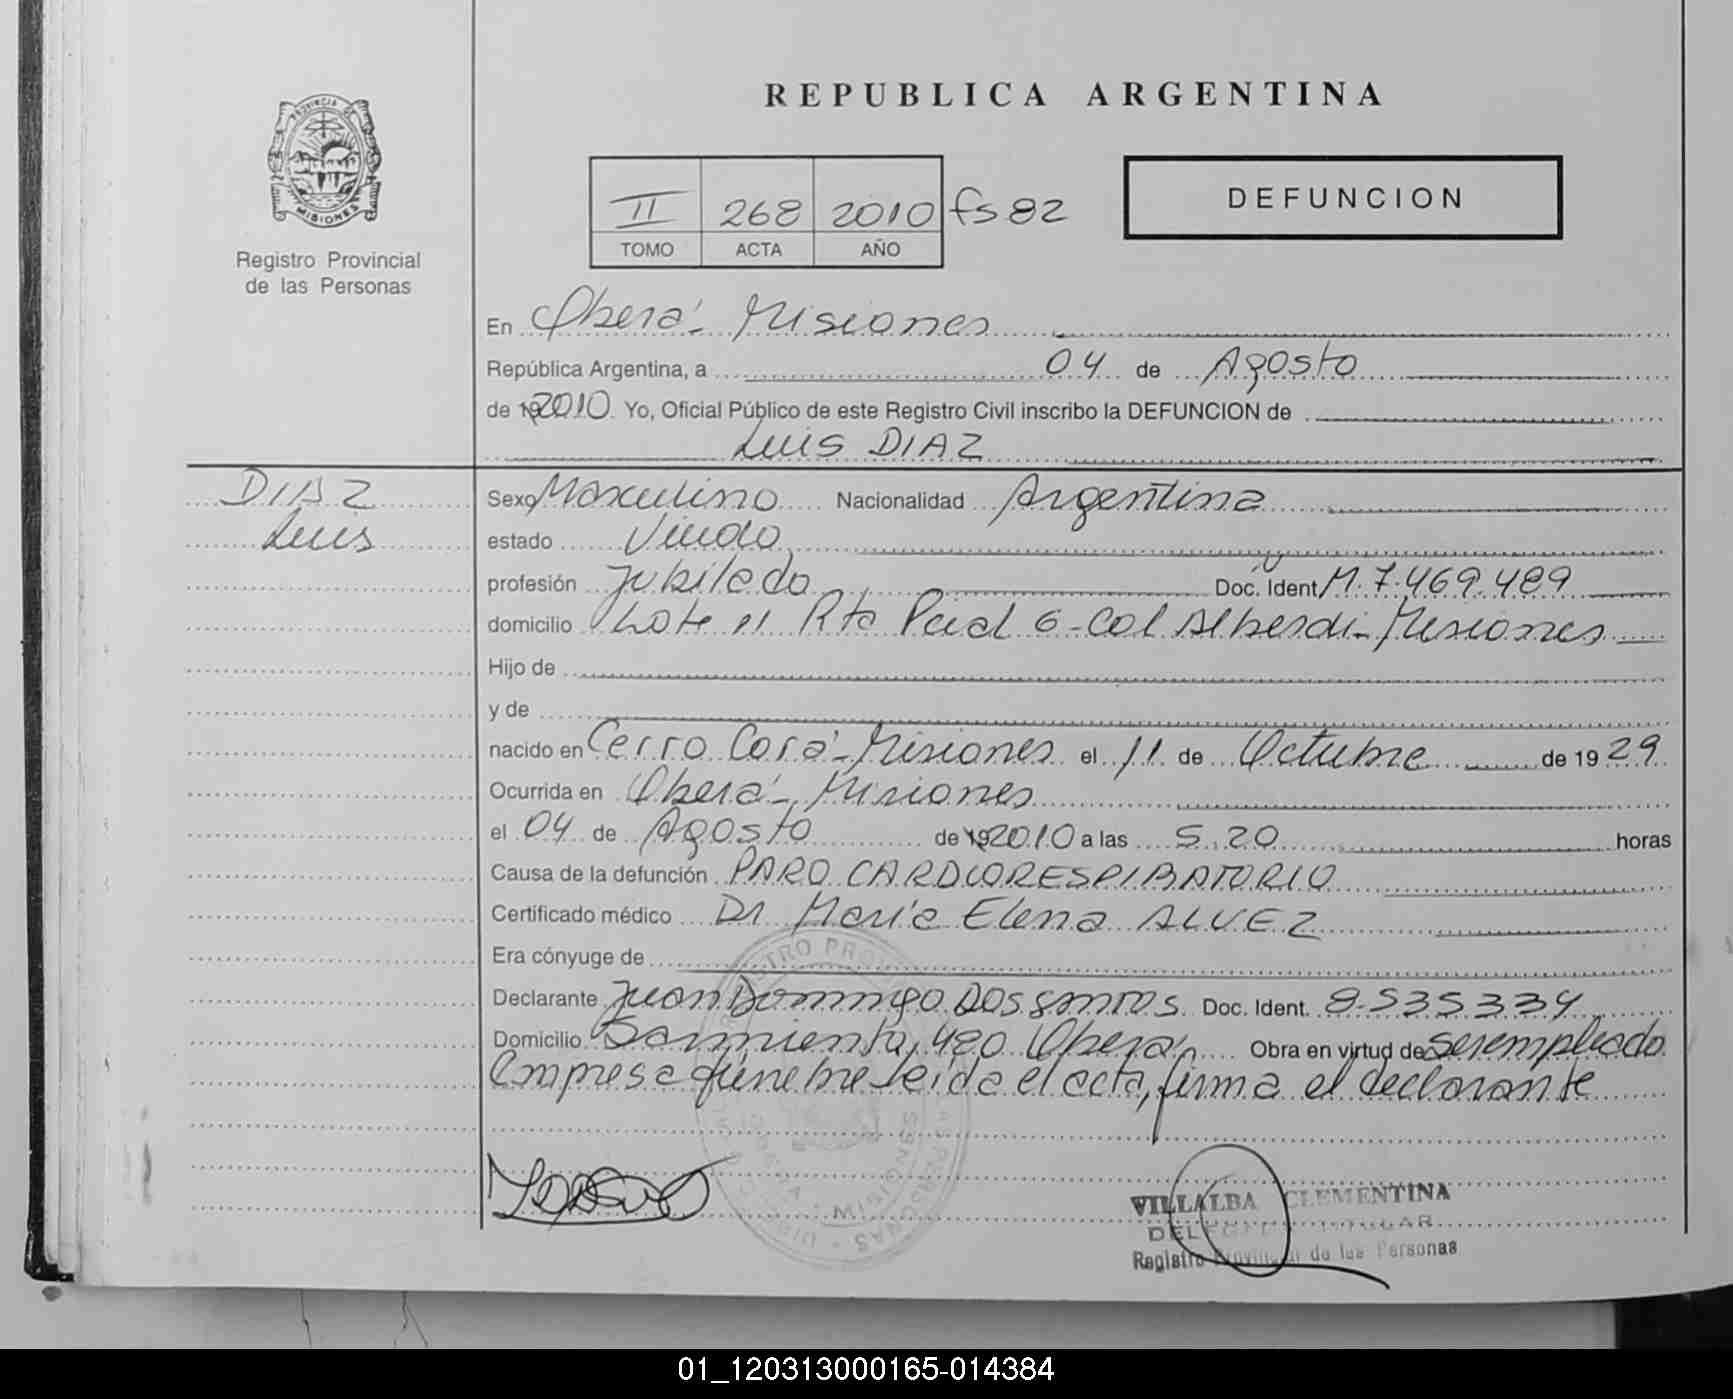 REPUBLICA ARGENTINA
PROVINCIA DE
MISIONES
Registro Provincial
de las Personas
II 268 2010 fs 82
TOMO ACTA AÑO
DEFUNCION
En Oberá - Misiones
República Argentina, a 04 de Agosto
de 19 2010. Yo, Oficial Público de este Registro Civil inscribo la DEFUNCION de
Luis DIAZ
DIAZ
Luis
Sexo Masculino Nacionalidad Argentina
estado Viudo
profesión Jubilado Doc. Ident M. 7.469.489
domicilio Lote 11 Rta Pcial 6 - Col Alberdi - Misiones
Hijo de
y de
nacido en Cerro Corá - Misiones el 11 de Octubre de 19 29
Ocurrida en Oberá - Misiones
el 04 de Agosto de 19 2010 a las 5.20 horas
Causa de la defunción PARO CARDIORESPIRATORIO
Certificado médico Dr María Elena ALVEZ
Era cónyuge de
Declarante Juan Domingo DOS SANTOS Doc. Ident. 8.535334
Domicilio Sarmiento 480 Oberá Obra en virtud de ser empleado
Empresa fúnebre leída el acta, firma el declarante
VILLALBA CLEMENTINA
DELEGADA TITULAR
Registro Provincial de las Personas
01_120313000165-014384